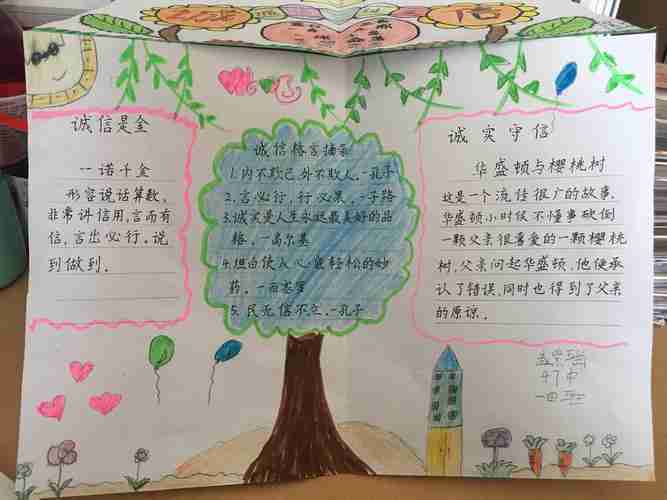 信
诚信是金
一诺千金
形容说话算数，
非常讲信用，言而有
信，言出必行。说
到做到。
诚信格言摘录
1.内不欺己，外不欺人。-孔子
2.言必行，行必果。-子路
3.诚实是人生永远最美好的品
格。-高尔基
4.坦白使人心最轻松的妙
药。-西塞罗
5.民无信不立。-孔子
诚实守信
华盛顿与樱桃树
这是一个流传很广的故事，
华盛顿小时候不懂事砍倒
一颗父亲很喜爱的一颗樱桃
树，父亲问起华盛顿，他便承
认了错误，同时也得到了父亲
的原谅。
47中
一四班